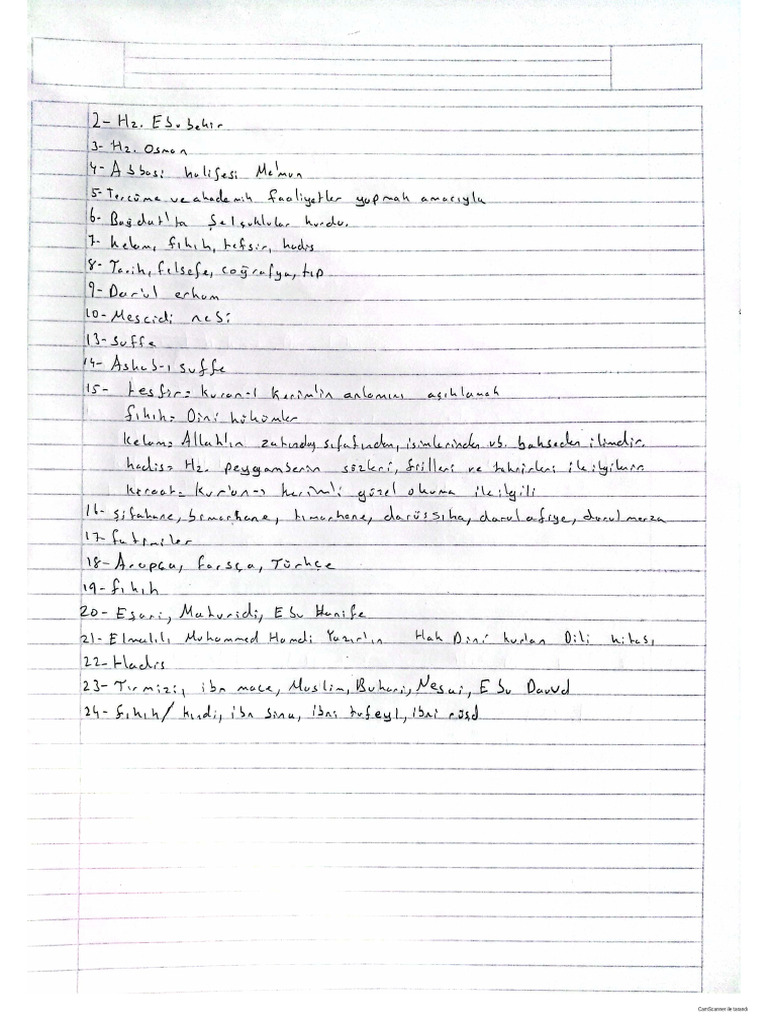 2- Hz. Ebubekir
3- Hz. Osman
4- Abbasi halifesi Me'mun
5- Tercüme ve akademik faaliyetler yapmak amacıyla
6- Bağdat'ta Selçuklular kurdu.
7- kelam, fıkıh, tefsir, hadis
8- Tarih, felsefe, coğrafya, tıp
9- Dar'ul erkam
10- Mescidi nebi
13- suffe
14- Ashab-ı suffe
15- tesfir= kuran-ı kerim'in anlamını açıklamak
fıkıh= Dini hükümler
kelam= Allah'ın zatından, sıfatından, isimlerinden vb. bahseden ilimdir.
hadis= Hz. peygamberin sözleri, fiilleri ve takrirleri ile ilgilenir
keraat= Kur'an-ı kerim'i güzel okuma ile ilgili
16- şifahane, bimarhane, tımarhane, darüssıha, darul afiye, darul merza
17- fatımiler
18- Arapça, Farsça, Türkçe
19- fıkıh
20- Eşari, Maturidi, Ebu Hanife
21- Elmalılı Muhammed Hamdi Yazır'ın Hak Dini kur'an Dili kitabı
22- Hadis
23- Tırmizi, ibn mace, Muslim, Buhari, Nesai, Ebu Davud
24- fıkıh/ kindi, ibn sina, ibni tufeyl, ibni rüşd
CamScanner ile tarandı